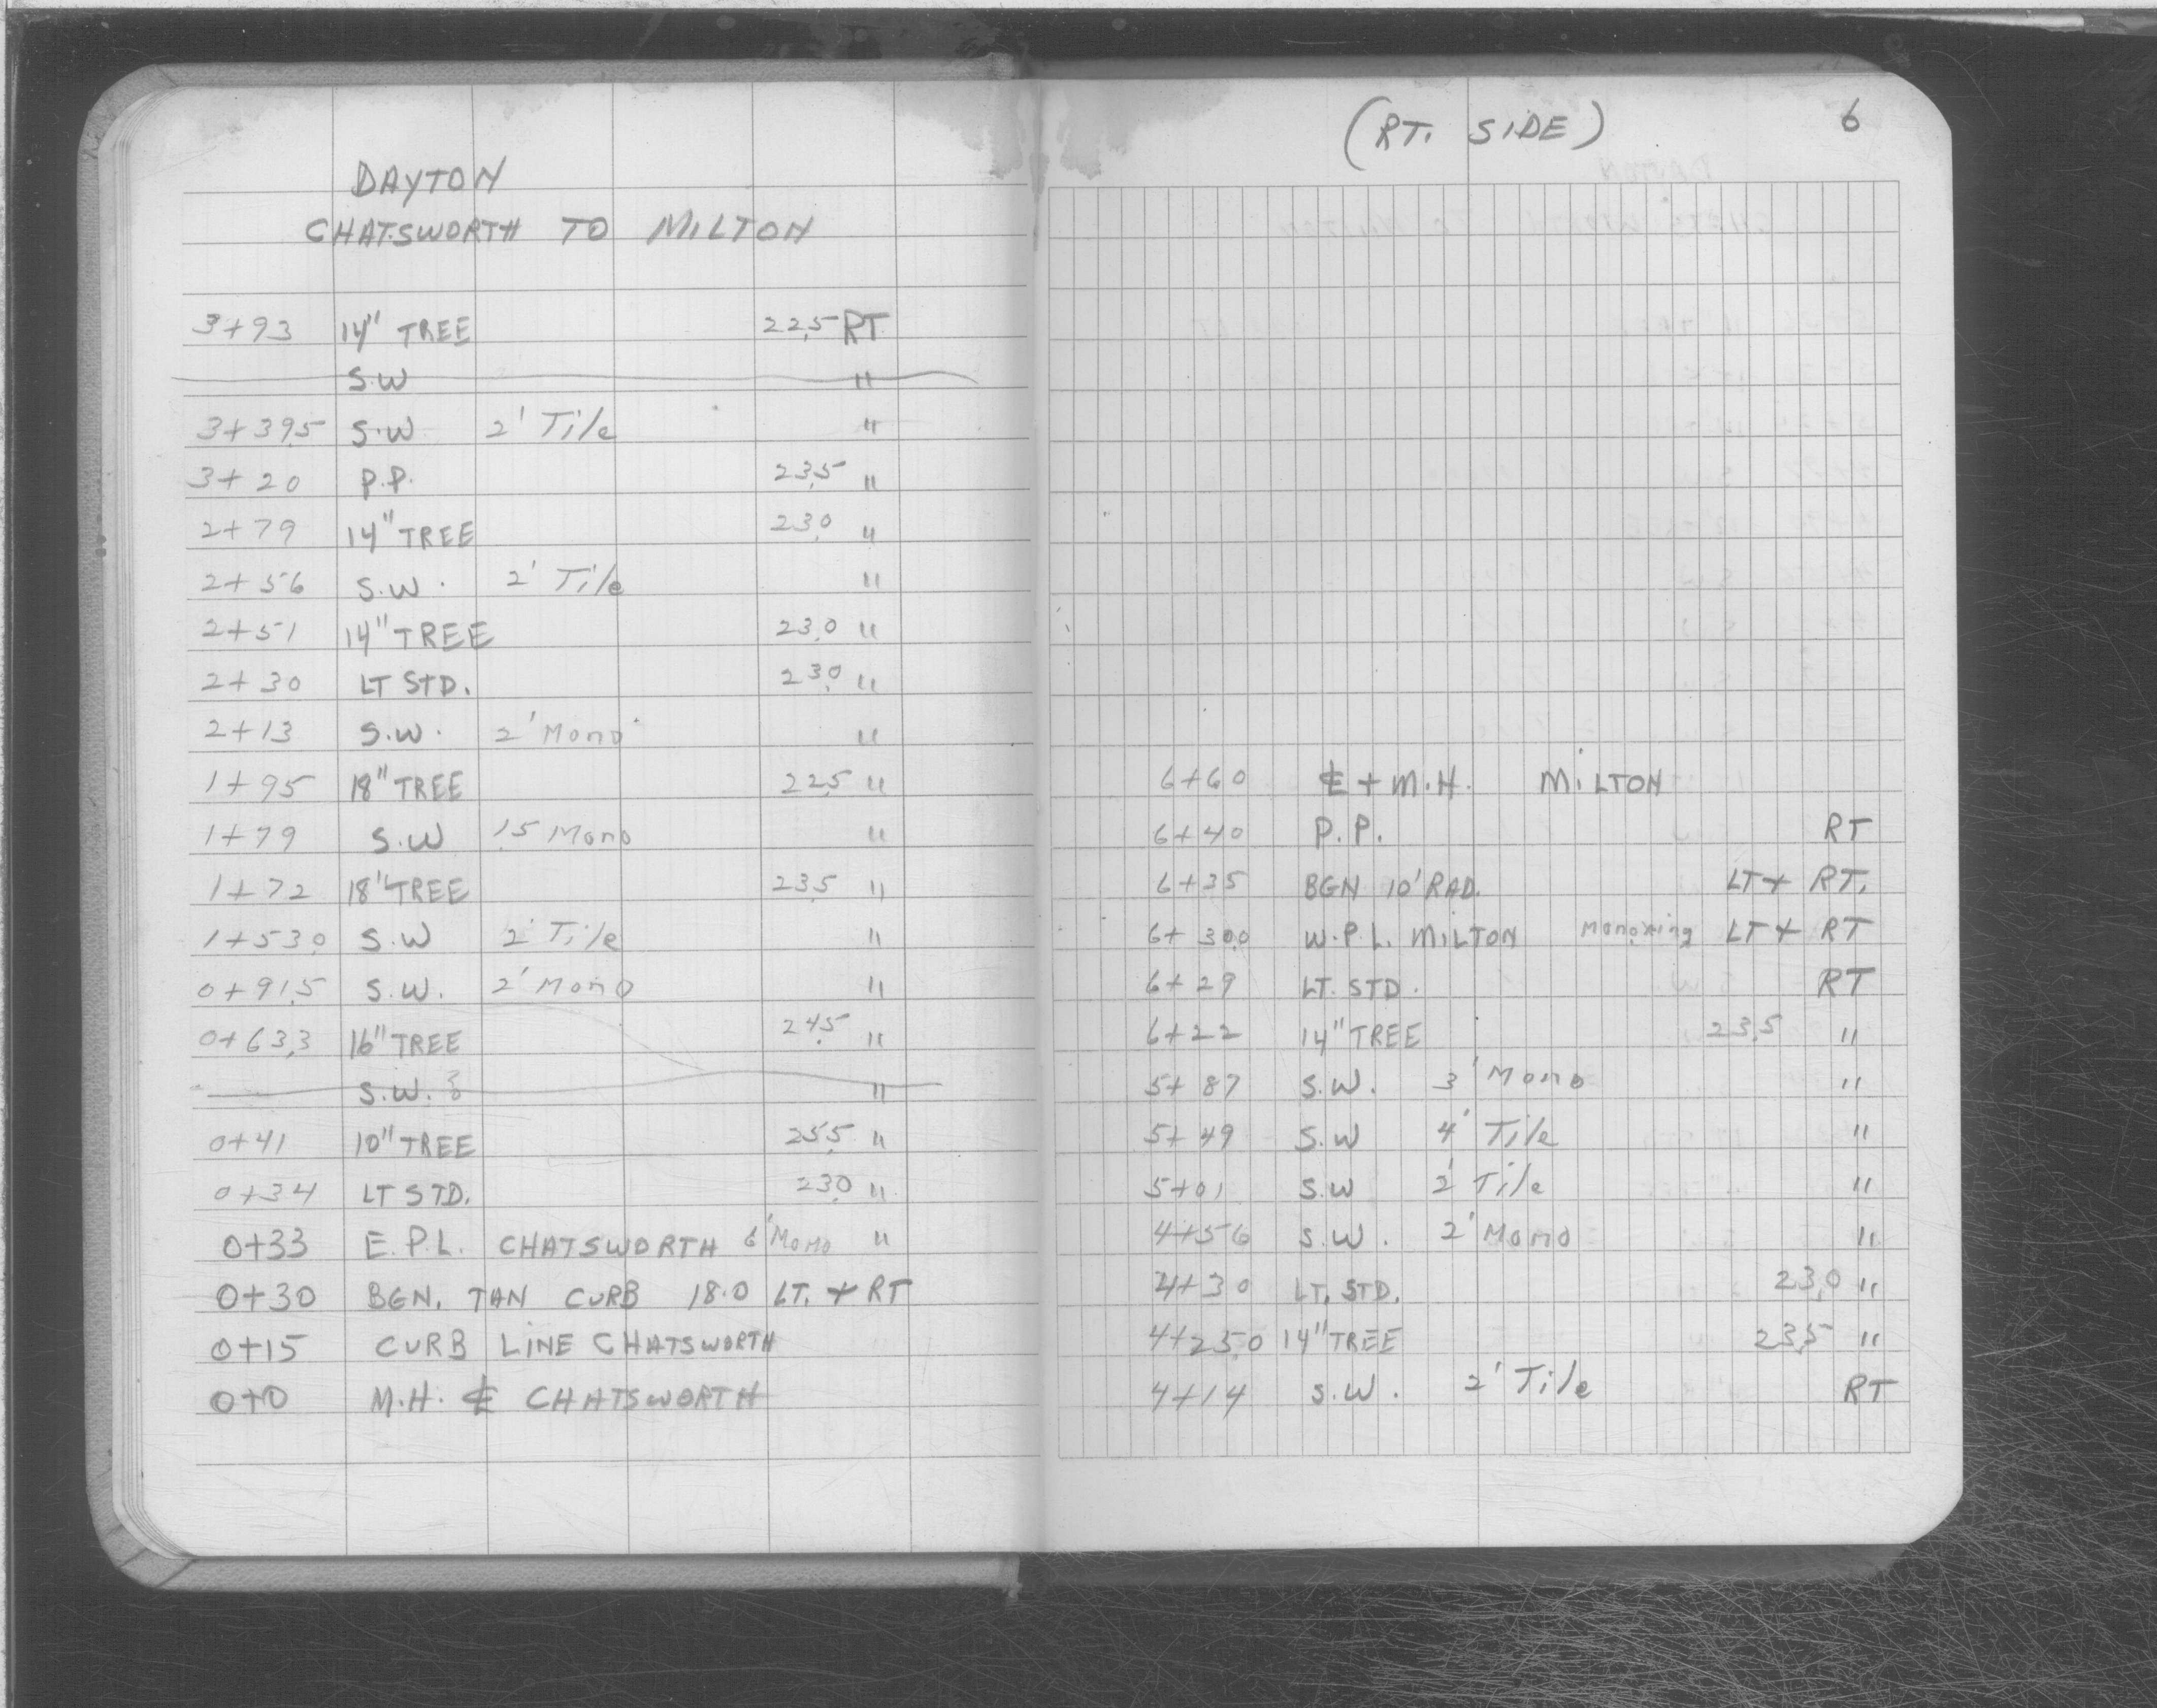 DAYTON
CHATSWORTH TO MILTON
3+93 14" TREE 22.5 RT
S.W "
3+39.5 S.W 2' Tile "
3+20 P.P. 23.5 "
2+79 14" TREE 23.0 "
2+56 S.W. 2' Tile "
2+51 14" TREE 23.0 "
2+30 LT STD. 23.0 "
2+13 S.W. 2' Mono "
1+95 18" TREE 22.5 "
1+79 S.W 1.5 Mono "
1+72 18" TREE 23.5 "
1+53.0 S.W 2' Tile "
0+91.5 S.W. 2' Mono "
0+63.3 16" TREE 24.5 "
S.W. "
0+41 10" TREE 25.5 "
0+34 LT STD. 23.0 "
0+33 E.P.L. CHATSWORTH 6' Mono "
0+30 BGN. TAN CURB 18.0 LT. + RT
0+15 CURB LINE CHATSWORTH
0+0 M.H. ℄ CHATSWORTH
(RT. SIDE) 6
6+60 ℄ + M.H. MILTON
6+40 P.P. RT
6+35 BGN 10' RAD. LT + RT.
6+30.0 W.P.L. MILTON LT + RT
6+29 LT. STD. RT
6+22 14" TREE 23.5 "
5+87 S.W. 3' Mono "
5+49 S.W 4' Tile "
5+01 S.W 2' Tile "
4+56 S.W. 2' Mono "
4+30 LT. STD. 23.0 "
4+25.0 14" TREE 23.5 "
4+14 S.W. 2' Tile RT